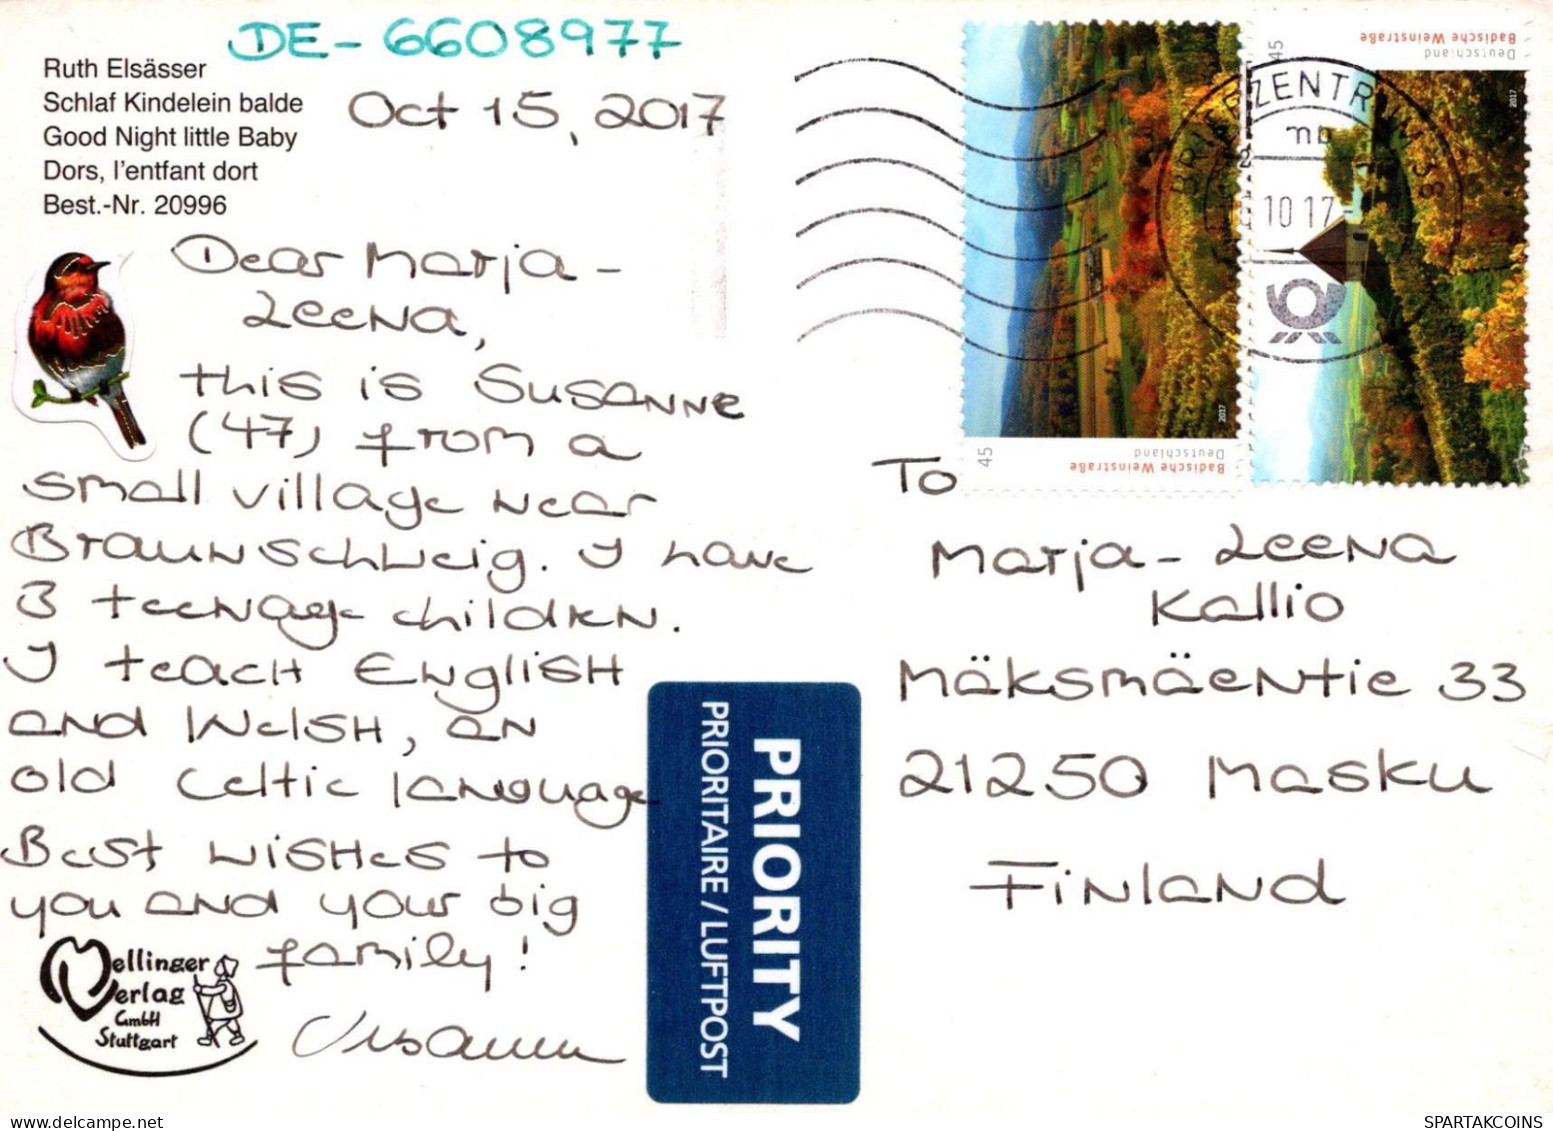 DE-6608977
Ruth Elsässer
Schlaf Kindelein balde
Good Night little Baby
Dors, l'entfant dort
Best.-Nr. 20996
Oct 15, 2017
Dear Marja-
Leena,
this is Susanne
(47) from a
small village near
Braunschweig. I have
3 teenage children.
I teach English
and Welsh, an
old Celtic language
Best wishes to
you and your big
family!
Susanne
Mellinger
Verlag
GmbH
Stuttgart
PRIORITY
PRIORITAIRE / LUFTPOST
45
Deutschland
Badische Weinstraße
2017
45
Deutschland
Badische Weinstraße
2017
BRIEFZENTRUM 38
mb
10 17-
To
Marja-Leena
Kallio
Mäksmäentie 33
21250 Masku
Finland
SPARTAKCOINS